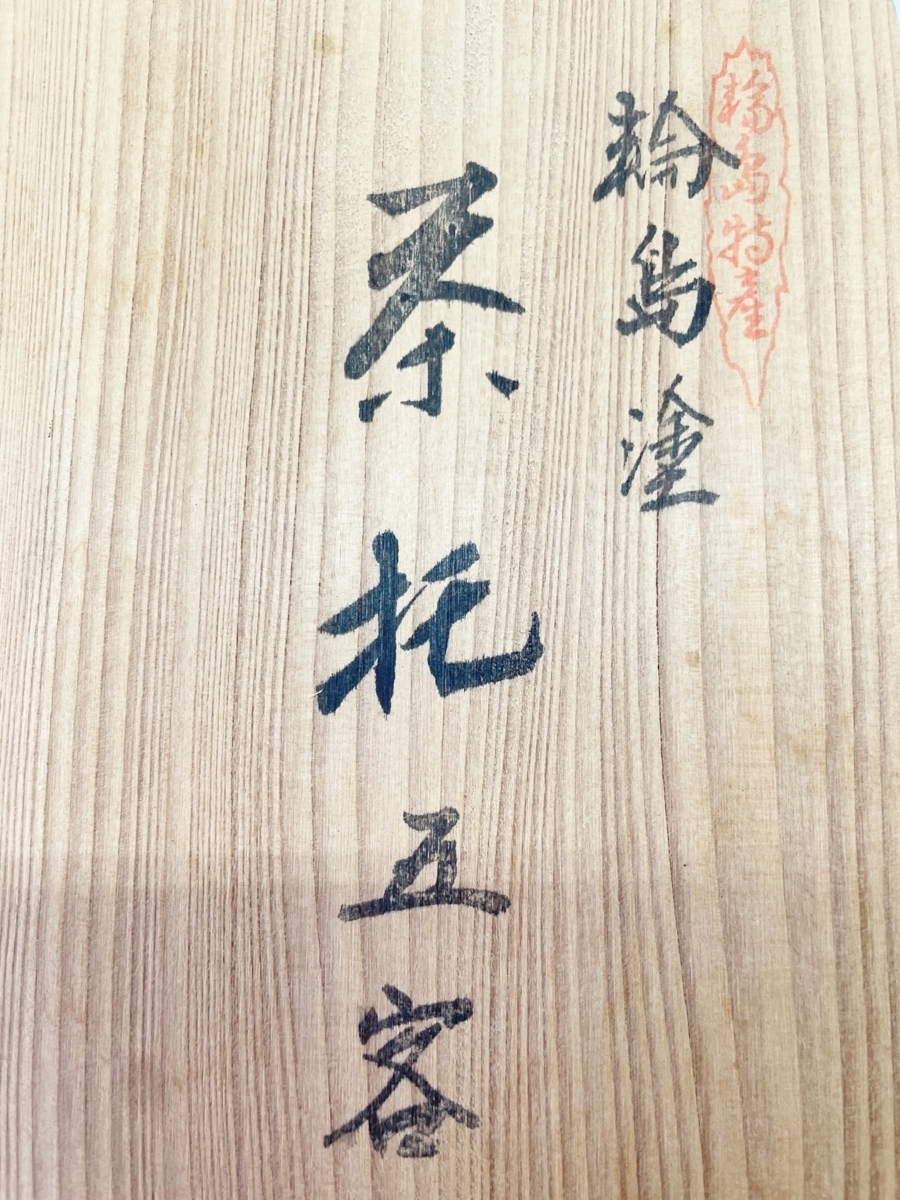 輪島特産
輪島塗
茶托
五客